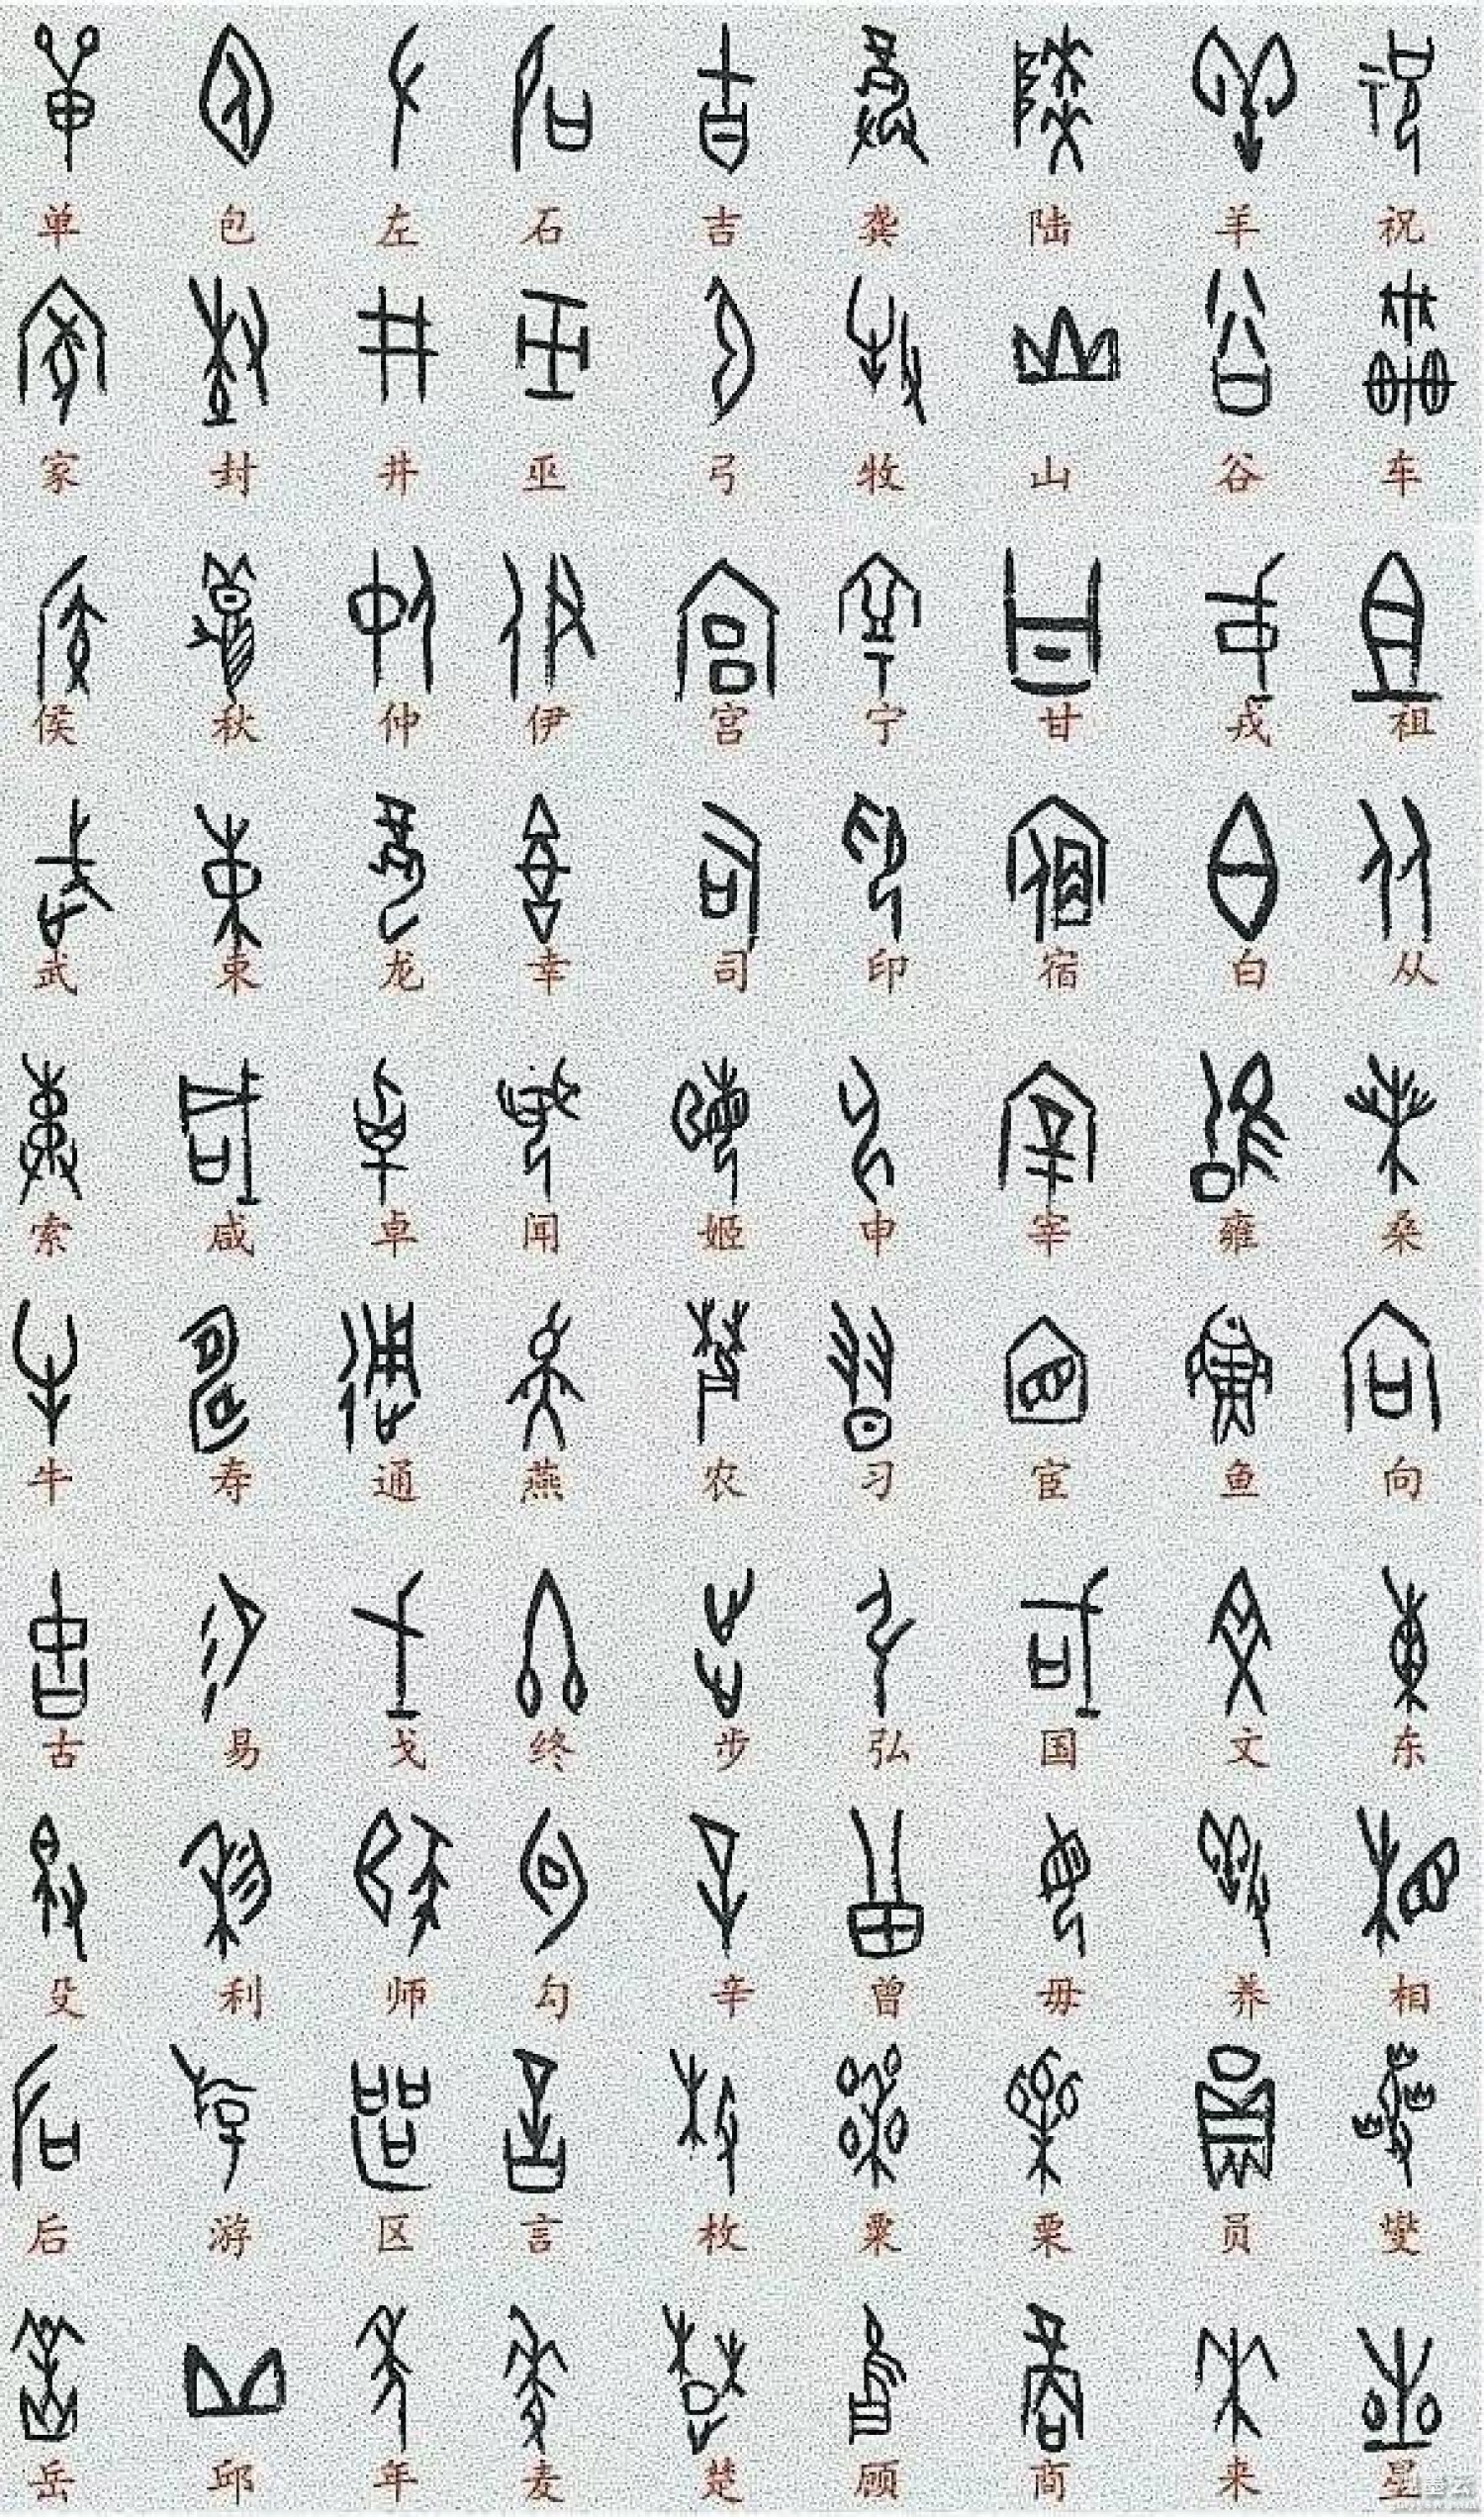 单 包 左 石 吉 龚 陆 羊 祝
家 封 井 巫 弓 牧 山 谷 车
侯 秋 仲 伊 宫 宁 甘 戎 祖
武 束 龙 幸 司 印 宿 白 从
索 咸 卓 闻 姬 申 宰 雍 桑
牛 寿 通 燕 农 习 宦 鱼 向
古 易 戈 终 步 弘 国 文 东
殳 利 师 勾 辛 曾 毋 养 相
后 游 区 言 枚 粟 栗 员 樊
岳 邱 年 麦 楚 顾 商 来 星